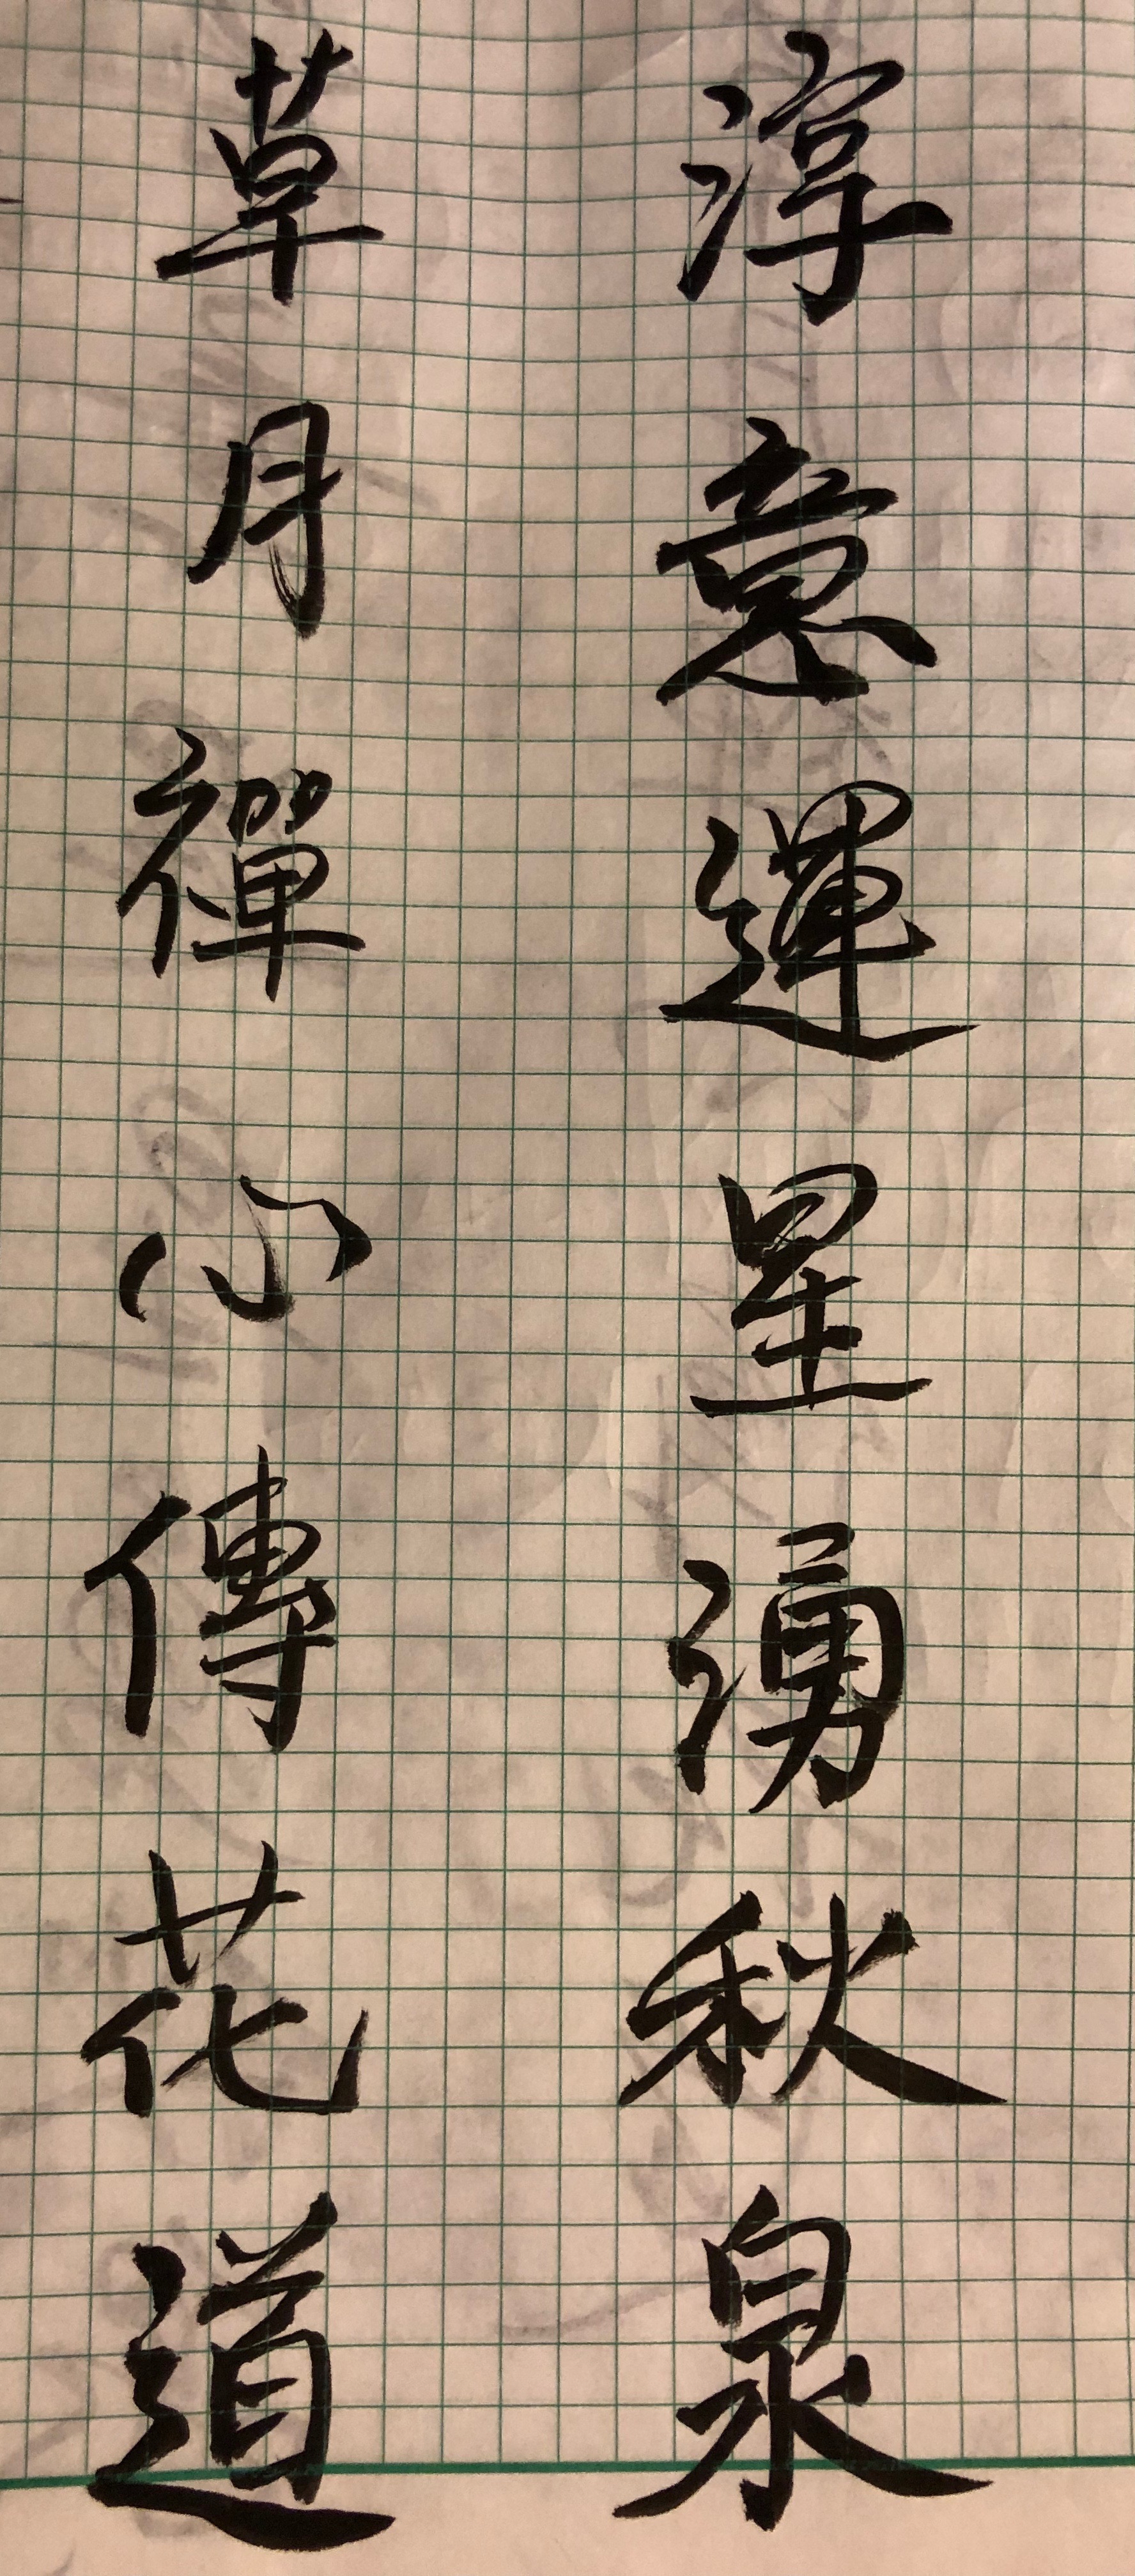 淳意運星湧秋泉
草月禪心傳花道